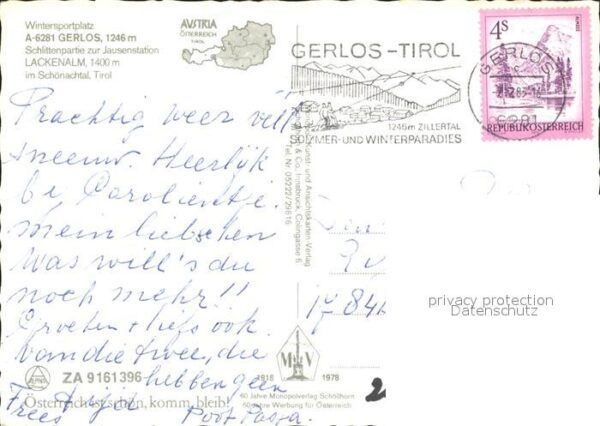 Wintersportplatz
A-6281 GERLOS, 1246 m
Schlittenpartie zur Jausenstation
LACKENALM, 1400 m
im Schönachtal, Tirol
AVSTRIA
ÖSTERREICH
TIROL
GERLOS-TIROL
1246m ZILLERTAL
SOMMER-UND WINTERPARADIES
GERLOS
6281
4S
REPUBLIK ÖSTERREICH
Prachtig weer veel
sneeuw. Heerlijk
bij Carolientje.
mein liebchen
was will's du
noch mehr!!
Groeten + liefs ook
van die twee, die
hebben geen
Post
Kunst- und Ansichtskarten-Verlag
& Co., Innsbruck, Colingasse 6
Tel. Nr. 05222/29616
ZA 9161396
Österreich ist schön, komm, bleib!
M V
1918 1978
60 Jahre Monopolverlag Schöllhorn
60 Jahre Werbung für Österreich
privacy protection
Datenschutz